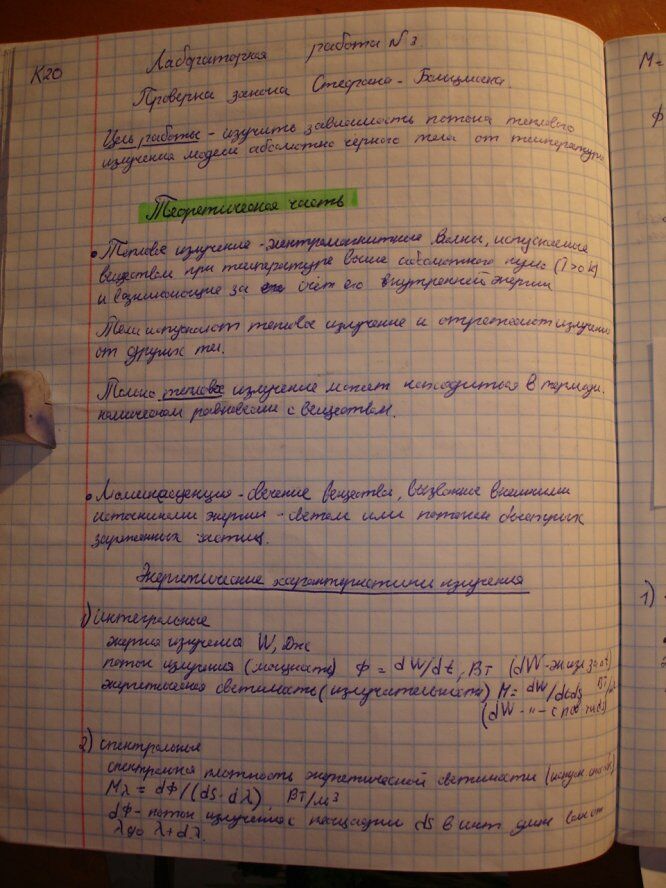 К20
Лабораторная работа №3
Проверка закона Стефана-Больцмана.
Цель работы - изучить зависимость потока теплового
излучения модели абсолютно чёрного тела от температуры
Теоретическая часть
• Тепловое излучение - электромагнитные волны, испускаемые
веществом при температуре выше абсолютного нуля (T>0 K)
и возникающие за счёт его внутренней энергии
Тела испускают тепловое излучение и отражают излучение
от других тел.
Только тепловое излучение может находиться в термоди-
намическом равновесии с веществом.
• Люминесценция - свечение вещества, вызванное внешними
источниками энергии - светом или потоком быстрых
заряженных частиц.
Энергетические характеристики излучения
1) интегральные
энергия излучения W, Дж
поток излучения (мощность) Ф = dW/dt, Вт (dW - эн изл за dt)
энергетическая светимость (излучательность) M = dW/dtds Вт/м²
(dW - " - с пов-ти ds)
2) спектральные
спектральная плотность энергетической светимости
Mλ = dФ/(dS·dλ), Вт/м³
dФ - поток излучения с площадки dS в инт длин волн от
λ до λ+dλ.
M=
Ф
1)